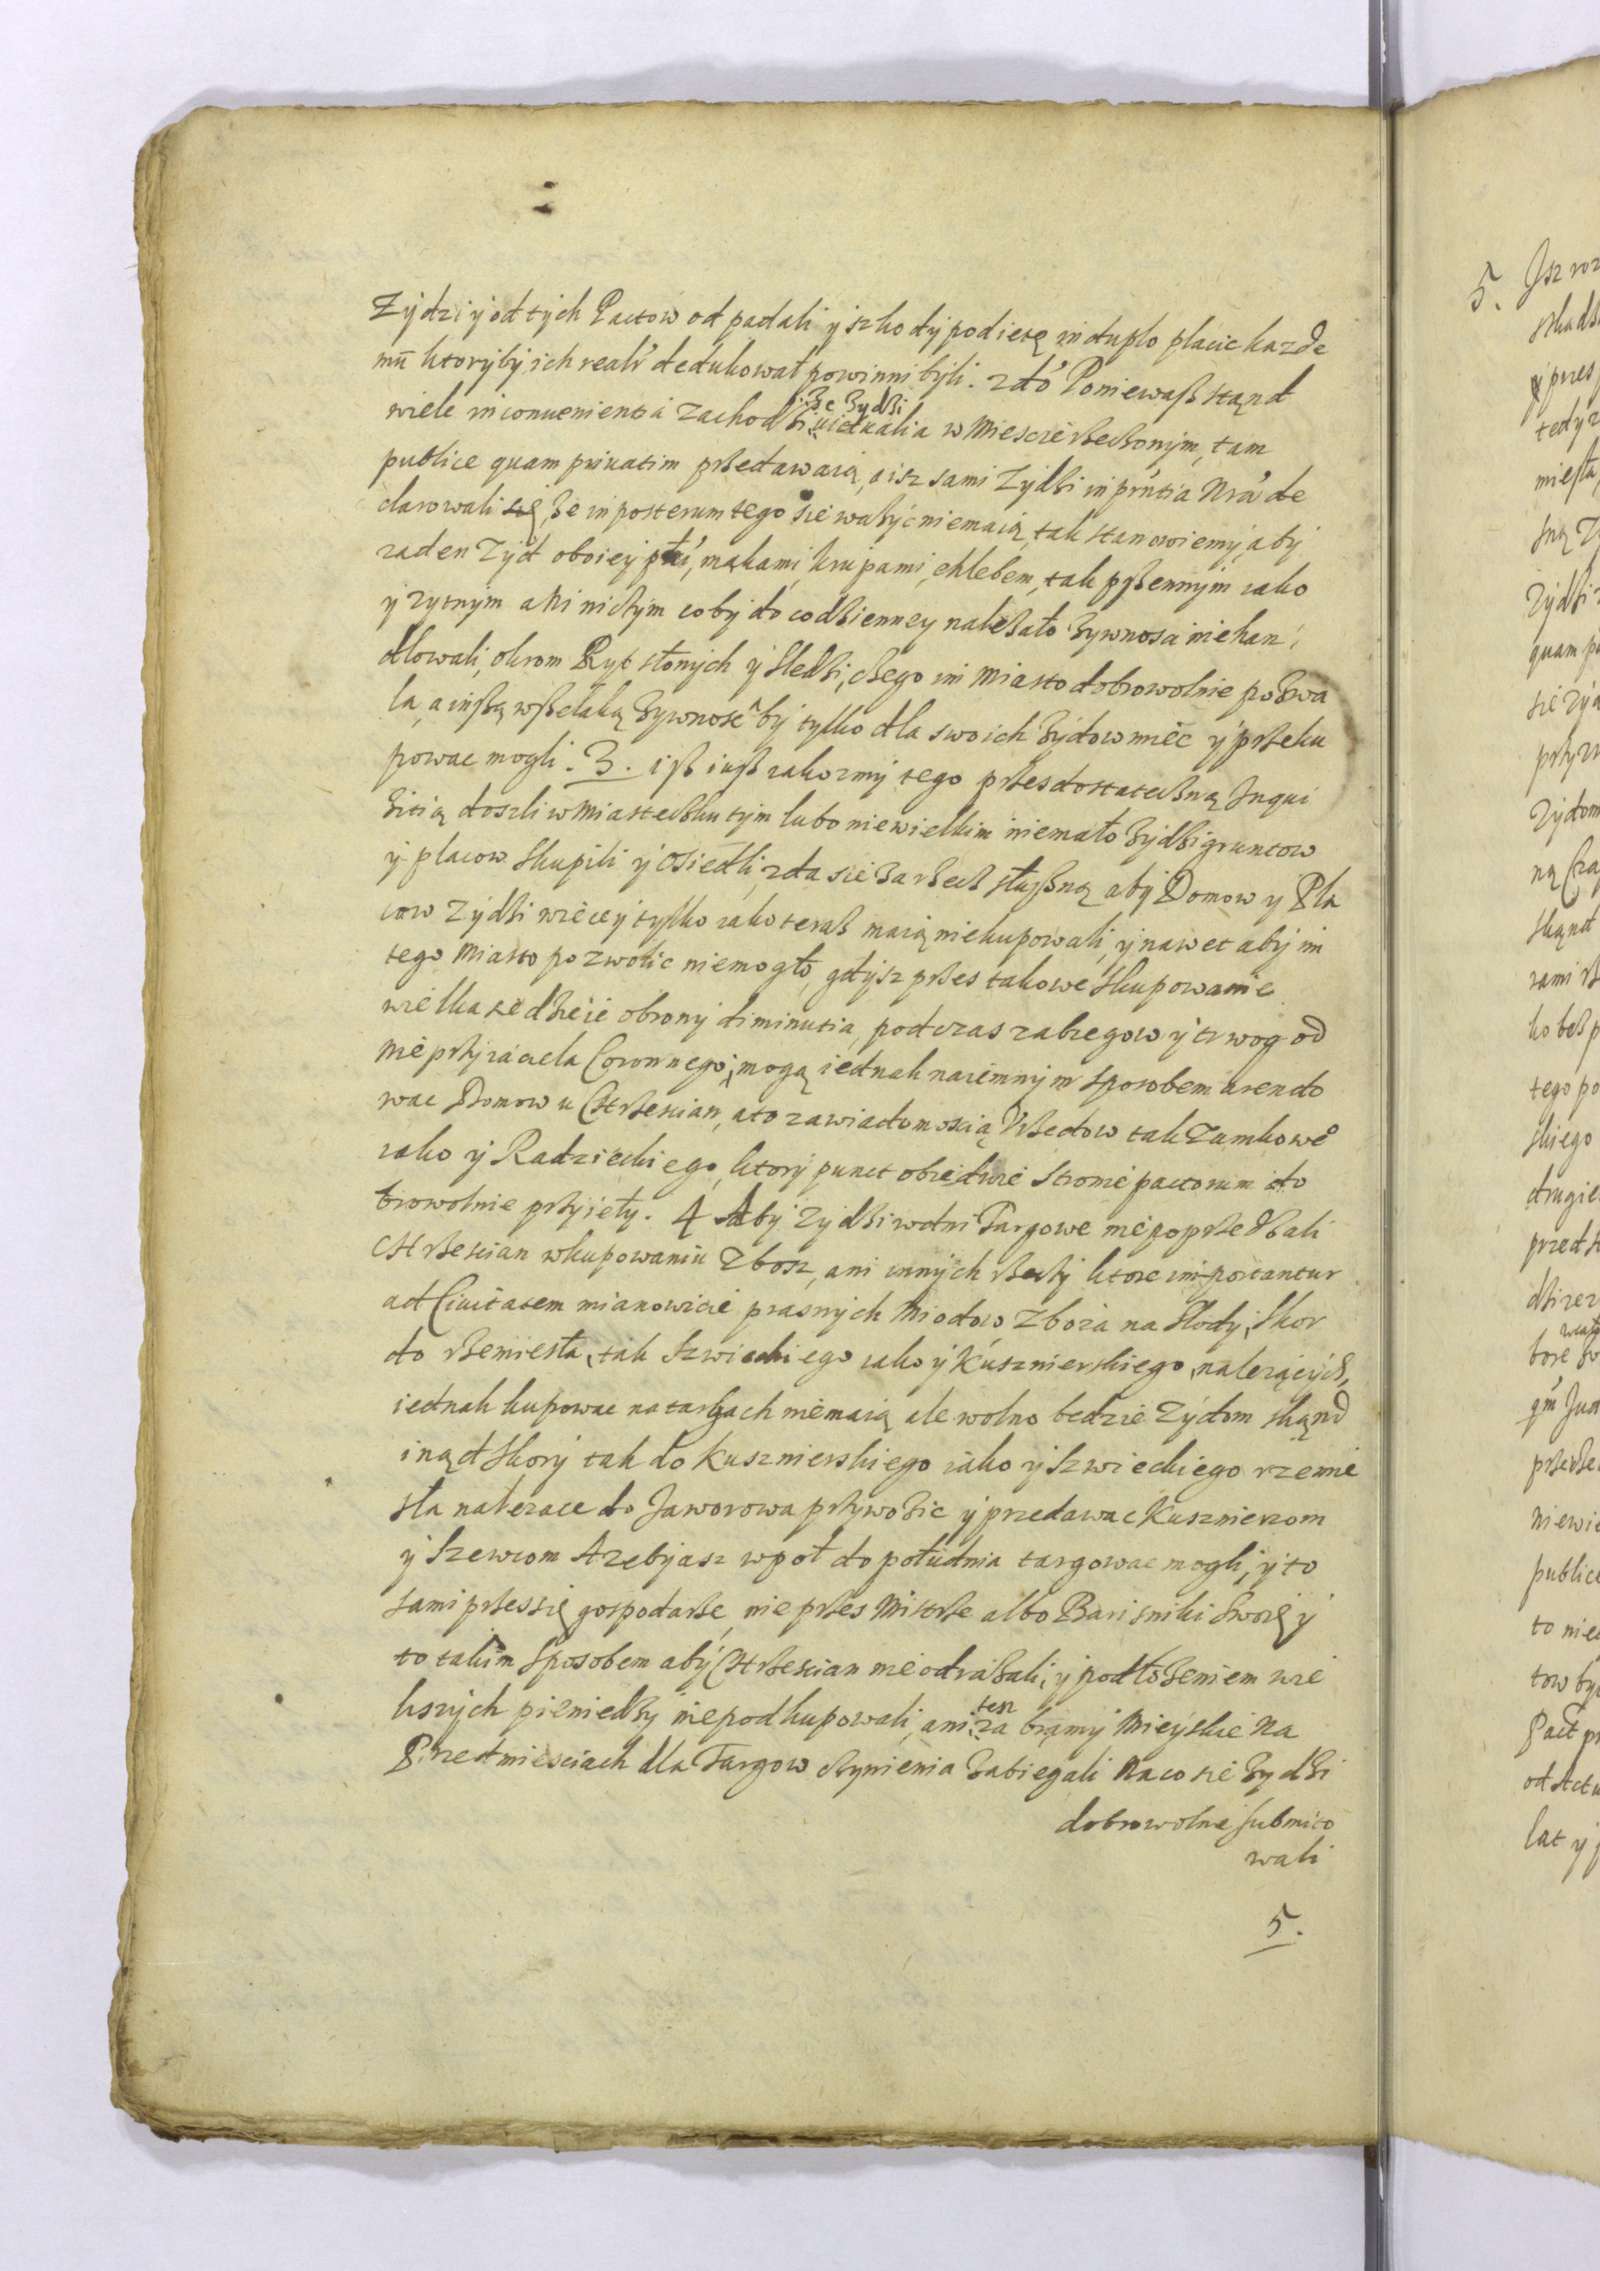 Zydzi y od tych Pactow od padali y szkody podięte in duplo placic kazde
mu ktoryby ich realr dedukował powinni byli. 2do Poniewaß ztąnd
wiele inconuenientia zachodßi iße Żydßi victualia w Miescie rßeczonym, tam
publice quam priuatim prßedawaią, a isz sami Zydßi in prntia Nra de
clarowali się, że in posterum tego sie ważyć niemaią, tak stanowiemy, aby
zaden Zyd oboiey płci, mąkami, krupami, chlebem, tak pßennym iako
y zytnym ani niczym co by do codßienney należało żywnosci niehan
dlowali, okrom Ryb słonych y Sledßi, cżego im Miasto dobrowolnie pozwa
la, a inßą wßelaką żywność by tylko dla swoich żydow miec y prßeku
powac mogli. 3. iß iuß iakozmy tego prßes dostateczną Inqui
zitią doszli w Miasteczku tym lubo niewielkim niemało żydßi gruntow
y placow skupili y osiedli, zda sie za rßecz słußną aby Domow y Pla
cow Zydßi więcey tylko iako teraß maią niekupowali, y nawet aby im
tego Miasto pozwolic niemogło, gdysz prßes takowe skupowanie
wielka sie dßieie obrony diminutia, podczas zabiegow y trwog od
Nieprzyiaciela Coronnego, mogą iednak naiemnym sposobem arendo
wac Domow u Chrßescian, a to za wiadomoscią Vrßedow tak Zamkowe°
iako y Radzieckiego, ktory punct obiedwie Stronie pactorum do
browolnie przyieły. 4 Aby Zydßi w dni Targowe niepoprßedßali
Chrßescian w kupowaniu Zbosz, ani innych rßeczy ktore importantur
ad Ciuitatem mianowicie prasnych Miodow, Zboża na Słody, Skor
do rßemiesła, tak Szwieckiego iako y Kusznierskiego, należących,
iednak kupowac na targach niemaią, ale wolno bedzie Zydom skąnd
inąd Skory tak do Kusznierskiego iako y Szwieckiego rzemie
sła nalezace do Jaworowa przywozic y przedawac Kusznierzom
y Szewcom A zeby asz wpoł do południa targowac mogli, y to
sami prßes się gospodarße, nie prßes Mistrße albo Barisniki swoię y
to takim sposobem aby Chrßescian nieodrażali, y podłożeniem wie
kszych pieniedßy niepodkupowali, ani tesz za bramy Mieyskie na
Przedmiesciach dla Targow czynienia zabiegali Na co sie żydßi
dobrowolnie submito
wali
5.
5. Isz roz